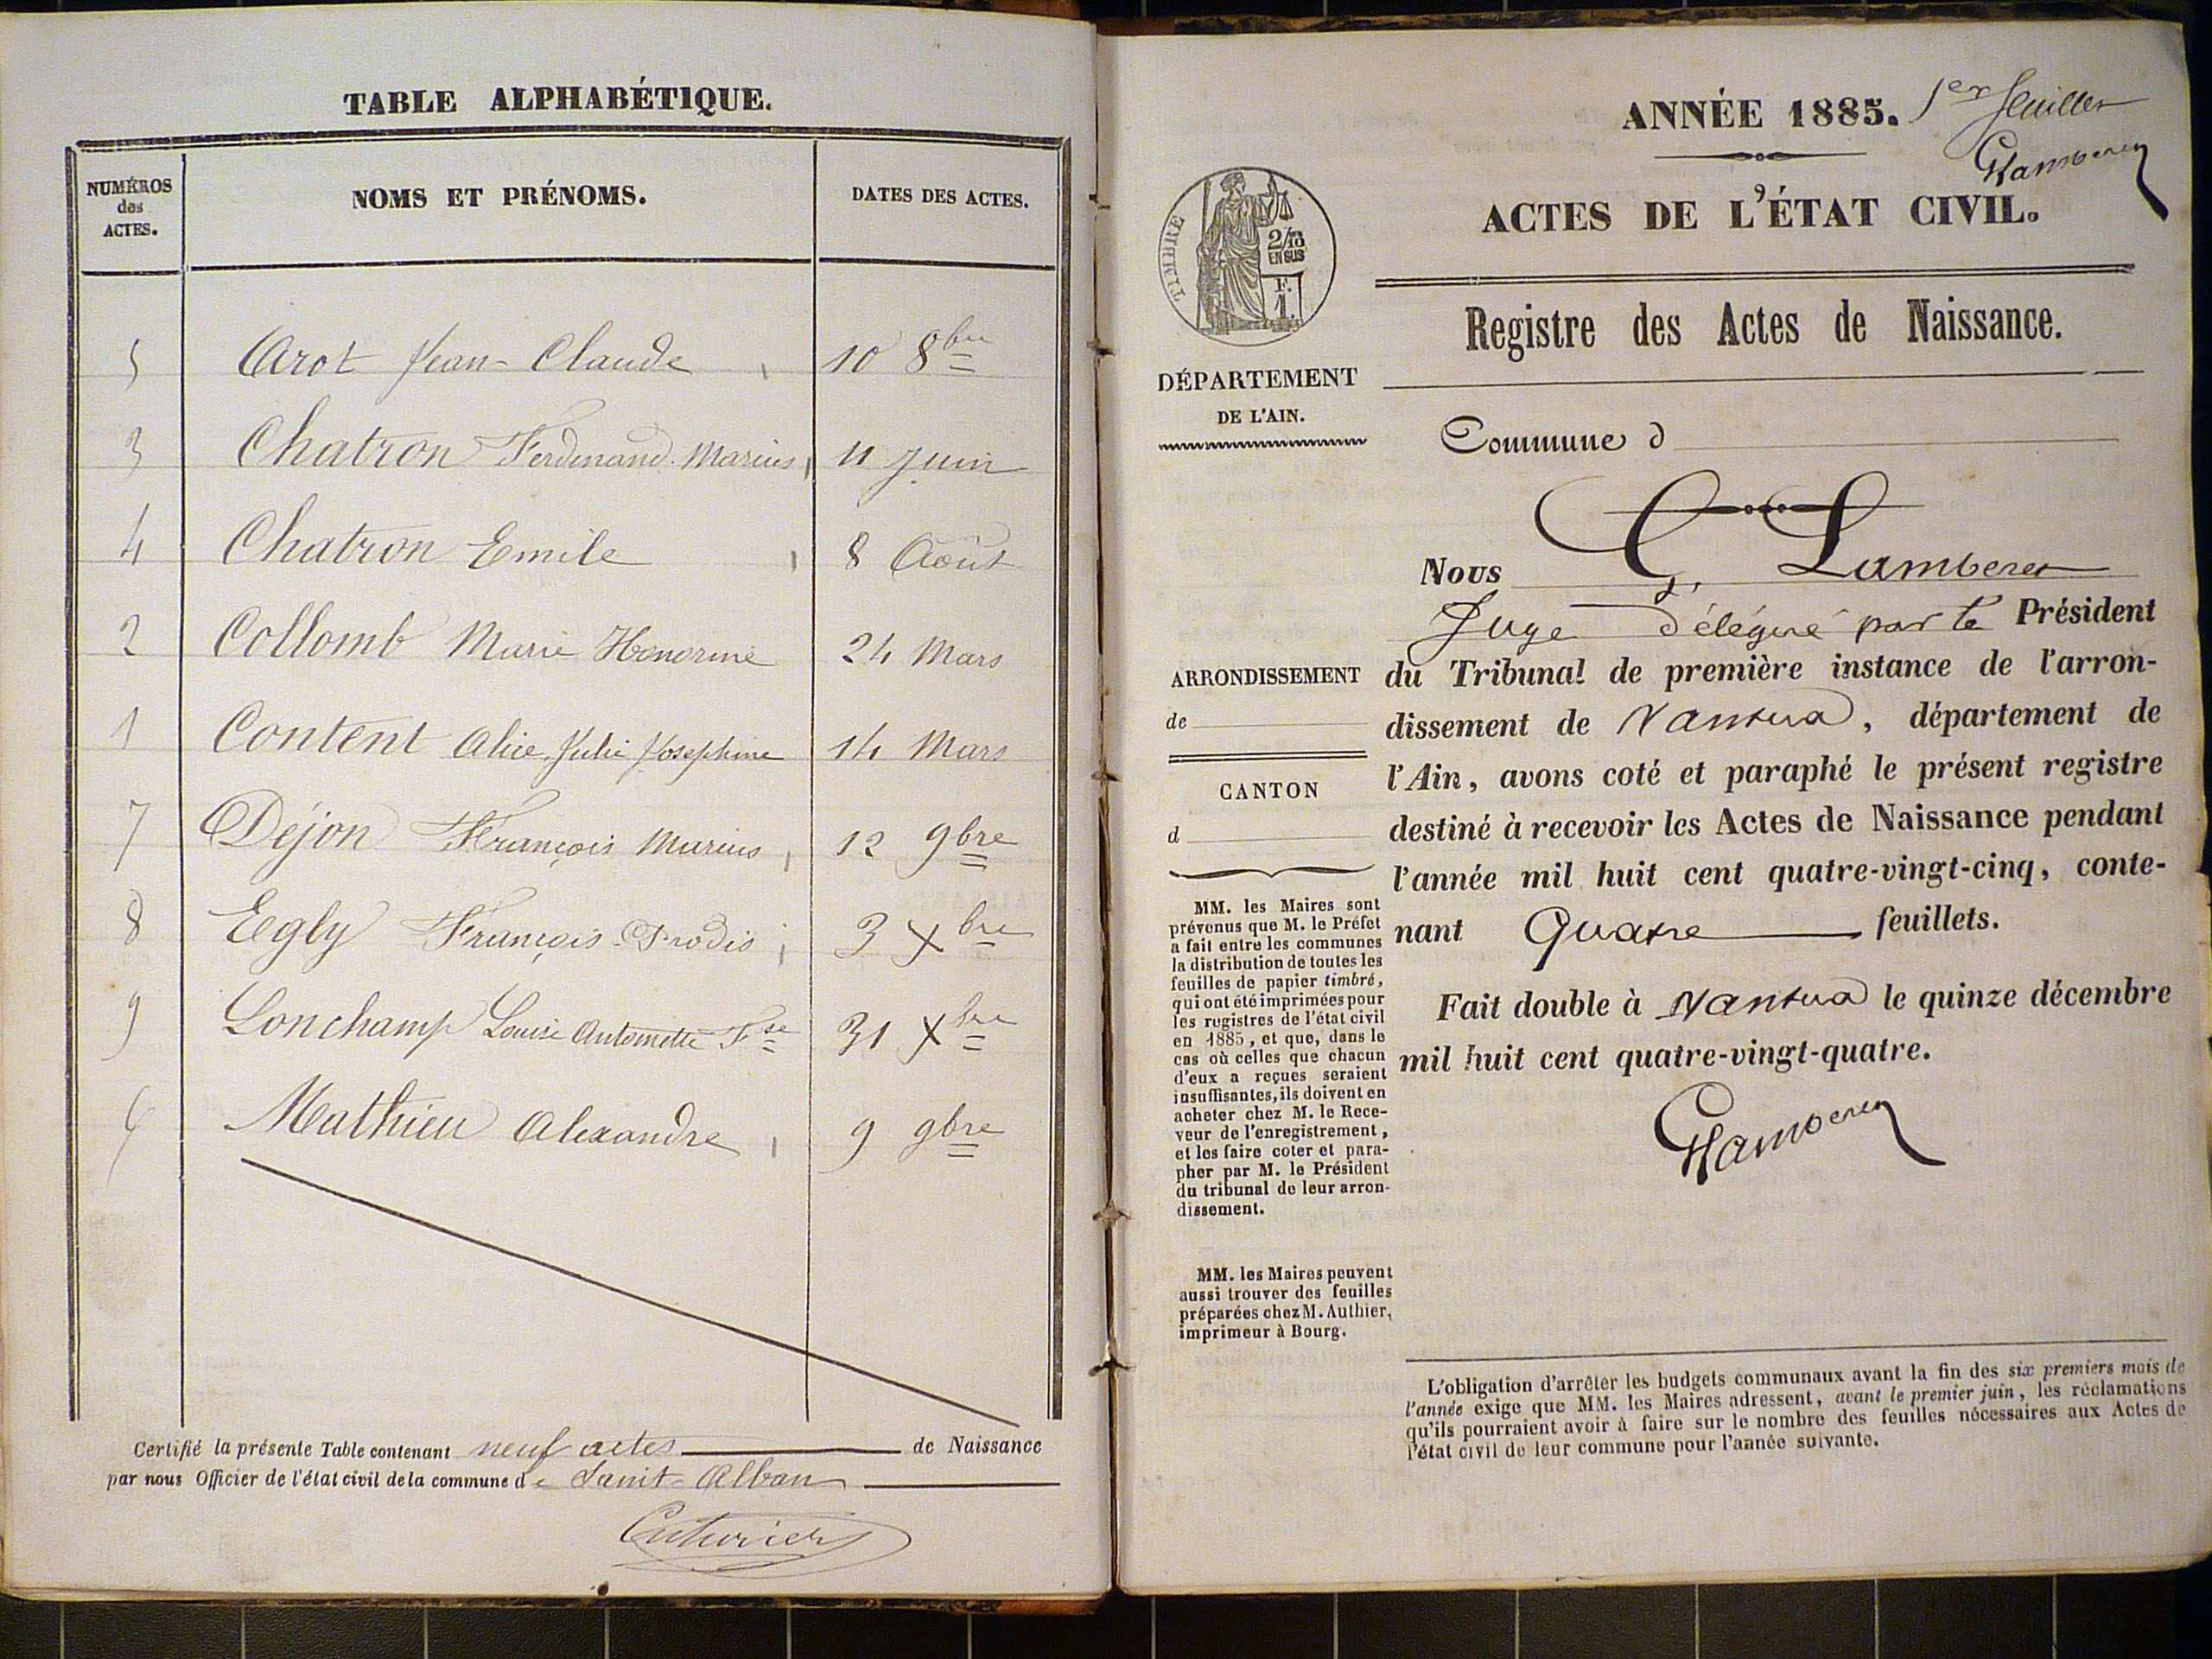 TABLE ALPHABÉTIQUE.
NUMÉROS des ACTES. NOMS ET PRÉNOMS. DATES DES ACTES.
5 Carot Jean-Claude 10 8bre
3 Chatron Ferdinand Marius 11 juin
4 Chatron Emile 8 Août
2 Collomb Marie Honorine 24 Mars
1 Content Alice Julie Joséphine 14 Mars
7 Déjon François Marius 12 9bre
8 Egly François 3 Xbre
9 Lonchamp Louise Antoinette Fse 31 Xbre
6 Mathieu Alexandre 9 9bre
Certifié la présente Table contenant neuf actes de Naissance
par nous Officier de l'état civil de la commune de Saint-Alban
Cuturier
ANNÉE 1885. 1er feuillet
ACTES DE L'ÉTAT CIVIL.
TIMBRE
2/10
EN SUS
F.
1.
Registre des Actes de Naissance.
DÉPARTEMENT
DE L'AIN.
Commune d
Nous G. Lamberet
Juge délégué par le Président
du Tribunal de première instance de l'arron-
dissement de Nantua, département de
l'Ain, avons coté et paraphé le présent registre
destiné à recevoir les Actes de Naissance pendant
l'année mil huit cent quatre-vingt-cinq, conte-
nant Quatre feuillets.
Fait double à Nantua le quinze décembre
mil huit cent quatre-vingt-quatre.
GLamberet
ARRONDISSEMENT
de
CANTON
d
MM. les Maires sont
prévenus que M. le Préfet
a fait entre les communes
la distribution de toutes les
feuilles de papier timbré,
qui ont été imprimées pour
les registres de l'état civil
en 1885, et que, dans le
cas où celles que chacun
d'eux a reçues seraient
insuffisantes, ils doivent en
acheter chez M. le Rece-
veur de l'enregistrement,
et les faire coter et para-
pher par M. le Président
du tribunal de leur arron-
dissement.
MM. les Maires peuvent
aussi trouver des feuilles
préparées chez M. Authier,
imprimeur à Bourg.
L'obligation d'arrêter les budgets communaux avant la fin des six premiers mois de
l'année exige que MM. les Maires adressent, avant le premier juin, les réclamations
qu'ils pourraient avoir à faire sur le nombre des feuilles nécessaires aux Actes de
l'état civil de leur commune pour l'année suivante.